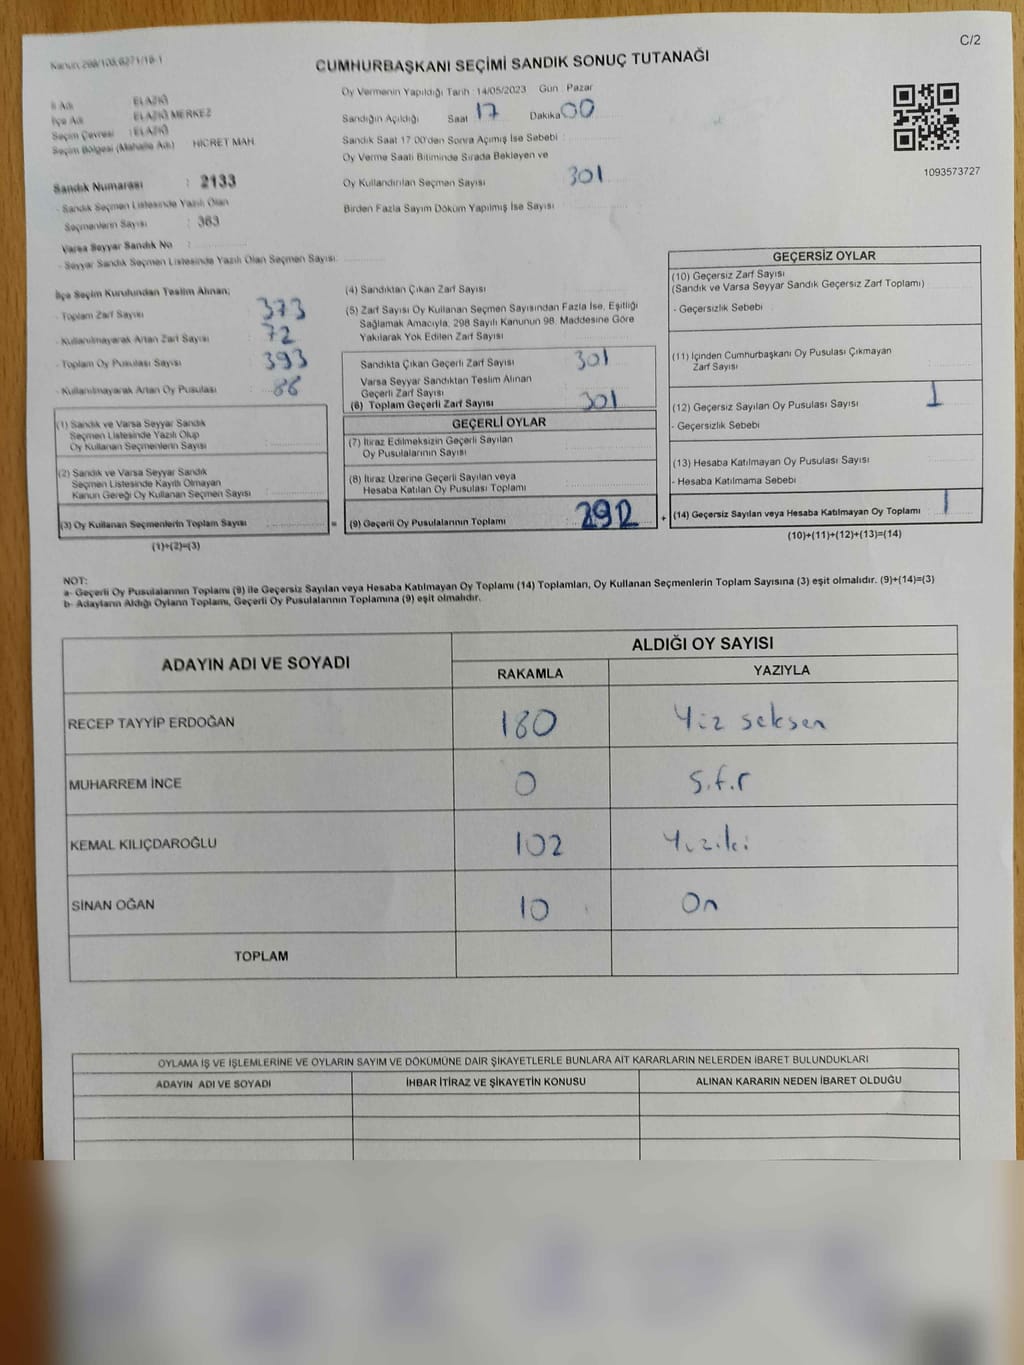 C/2
Kanun: 298/105,6271/18-1
CUMHURBAŞKANI SEÇİMİ SANDIK SONUÇ TUTANAĞI
İl Adı : ELAZIĞ
İlçe Adı : ELAZIĞ MERKEZ
Seçim Çevresi : ELAZIĞ
Seçim Bölgesi (Mahalle Adı) HİCRET MAH.
Oy Vermenin Yapıldığı Tarih : 14/05/2023 Gün : Pazar
Sandığın Açıldığı Saat 17 Dakika 00
Sandık Saat 17.00'den Sonra Açımış İse Sebebi :
Oy Verme Saati Bitiminde Sırada Bekleyen ve
Oy Kullandırılan Seçmen Sayısı 301
Birden Fazla Sayım Döküm Yapılmış İse Sayısı
1093573727
Sandık Numarası : 2133
- Sandık Seçmen Listesinde Yazılı Olan
Seçmenlerin Sayısı : 363
Varsa Seyyar Sandık No :
- Seyyar Sandık Seçmen Listesinde Yazılı Olan Seçmen Sayısı:
İlçe Seçim Kurulundan Teslim Alınan;
- Toplam Zarf Sayısı : 373
- Kullanılmayarak Artan Zarf Sayısı : 72
- Toplam Oy Pusulası Sayısı : 393
- Kullanılmayarak Artan Oy Pusulası : 86
(1) Sandık ve Varsa Seyyar Sandık
Seçmen Listesinde Yazılı Olup
Oy Kullanan Seçmenlerin Sayısı :
(2) Sandık ve Varsa Seyyar Sandık
Seçmen Listesinde Kayıtlı Olmayan
Kanun Gereği Oy Kullanan Seçmen Sayısı :
(3) Oy Kullanan Seçmenlerin Toplam Sayısı : =
(1)+(2)=(3)
(4) Sandıktan Çıkan Zarf Sayısı
(5) Zarf Sayısı Oy Kullanan Seçmen Sayısından Fazla İse, Eşitliği
Sağlamak Amacıyla, 298 Sayılı Kanunun 98. Maddesine Göre
Yakılarak Yok Edilen Zarf Sayısı
Sandıkta Çıkan Geçerli Zarf Sayısı 301
Varsa Seyyar Sandıktan Teslim Alınan
Geçerli Zarf Sayısı
(6) Toplam Geçerli Zarf Sayısı 301
GEÇERLİ OYLAR
(7) İtiraz Edilmeksizin Geçerli Sayılan
Oy Pusulalarının Sayısı
(8) İtiraz Üzerine Geçerli Sayılan veya
Hesaba Katılan Oy Pusulası Toplamı
(9) Geçerli Oy Pusulalarının Toplamı 292 +
GEÇERSİZ OYLAR
(10) Geçersiz Zarf Sayısı
(Sandık ve Varsa Seyyar Sandık Geçersiz Zarf Toplamı)
- Geçersizlik Sebebi
(11) İçinden Cumhurbaşkanı Oy Pusulası Çıkmayan
Zarf Sayısı
(12) Geçersiz Sayılan Oy Pusulası Sayısı 1
- Geçersizlik Sebebi
(13) Hesaba Katılmayan Oy Pusulası Sayısı
- Hesaba Katılmama Sebebi
(14) Geçersiz Sayılan veya Hesaba Katılmayan Oy Toplamı 1
(10)+(11)+(12)+(13)=(14)
NOT:
a- Geçerli Oy Pusulalarının Toplamı (9) ile Geçersiz Sayılan veya Hesaba Katılmayan Oy Toplamı (14) Toplamları, Oy Kullanan Seçmenlerin Toplam Sayısına (3) eşit olmalıdır. (9)+(14)=(3)
b- Adayların Aldığı Oyların Toplamı, Geçerli Oy Pusulalarının Toplamına (9) eşit olmalıdır.
ADAYIN ADI VE SOYADI
ALDIĞI OY SAYISI
RAKAMLA YAZIYLA
RECEP TAYYİP ERDOĞAN 180 Yüz seksen
MUHARREM İNCE 0 Sıfır
KEMAL KILIÇDAROĞLU 102 Yüziki
SİNAN OĞAN 10 On
TOPLAM
OYLAMA İŞ VE İŞLEMLERİNE VE OYLARIN SAYIM VE DÖKÜMÜNE DAİR ŞİKAYETLERLE BUNLARA AİT KARARLARIN NELERDEN İBARET BULUNDUKLARI
ADAYIN ADI VE SOYADI İHBAR İTİRAZ VE ŞİKAYETİN KONUSU ALINAN KARARIN NEDEN İBARET OLDUĞU